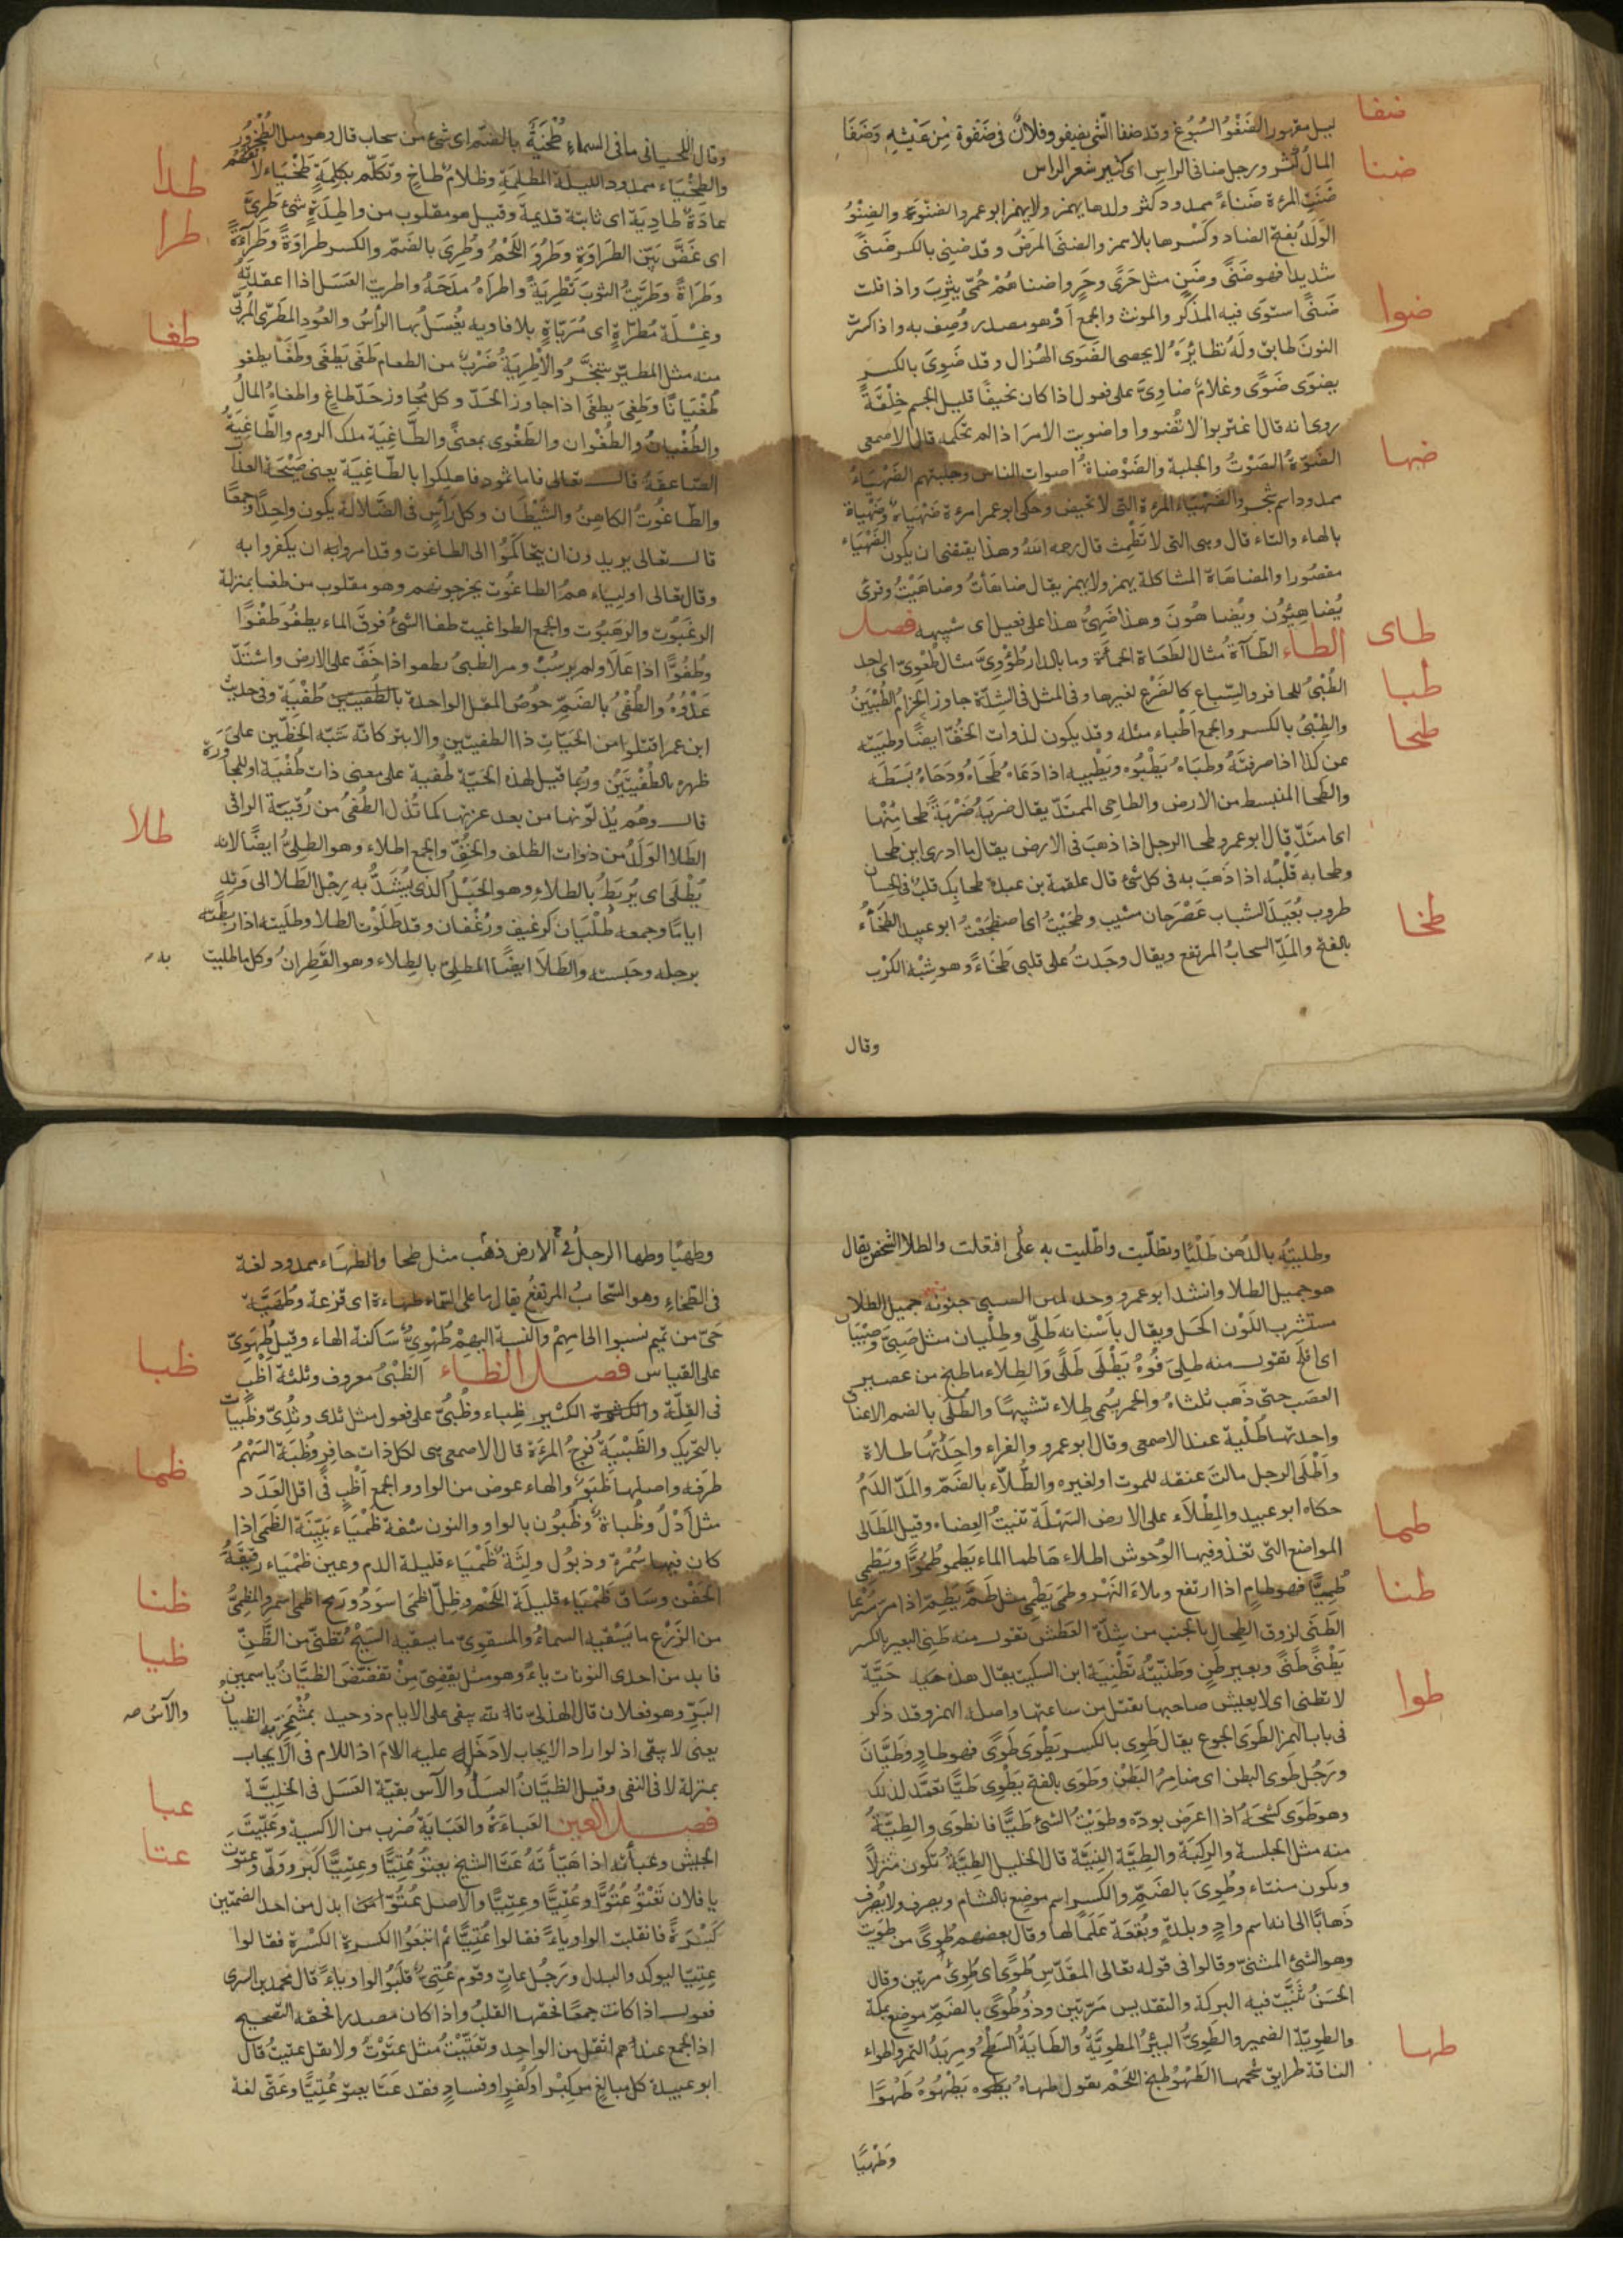 ضفا
الضَّفْوُ السُبُوغ وقد ضفا الشّئ يضفو وفلانٌ فى ضَفْوة مِن عَيْشِه وَضَفَا
ضنا
المالُ كثر ورجل ضافى الراسِ اى كثير شعر الراس
ضَنَتِ المرءة ضَناءً ممدود كثر ولدها يهمز ولا يهمز ابو عمرو الضنْوُ والضِنْوُ
الوَلَدُ بفتح الضاد وكَسْرها بلا همز والضنَى المَرَضُ وقد ضنِى بالكسر ضَنىً
شديدا فهو ضَنىً وضَنٍ مثل حَرًى وحَرٍ واضنا هُمْ حُمّى يثرِبَ واذا قلت
ضوا
ضَنىً استوَى فيه المذكر والمونث والجمع لانه هو مصدر وُصِف به واذا كسرتَ
النونَ طابق ولَهُ نظائِرُ لا يحصى الضَوَى الهُزال وقد ضَوِىَ بالكسر
يضوَى ضَوًى وغلامٌ ضاوِىّ على فعول اذا كان نحيفًا قليل الجسم خِلْقَةً
روى انه قال اغتربوا لا تُضْووا واضويت الامرَ اذا لم تحكمه قال الاصمعى
ضها
الضَوّةُ الصَوْتُ والجلبة والضَوْضاةُ اصوات الناس وجلبتهم الضَهْيَاءُ
ممدود اسم شجر والضَهْيَاءُ المرءة التى لا تحيض وحكى ابو عمرو امرءة ضَهْيَاةٌ وضَهْياة
بالهاء والتاء قال وهى التى لا تَطْمِث قال رحمه الله وهذا يقتضى ان يكون الضَهْيَاء
مقصُورا والمضاهَاة المشاكلة يهمز ولا يهمز يقال ضاهَأتُ وضاهَيْتُ وقرئ
طاى
يُضاهِئون ويُضاهُونَ وهذا ضَهِىُّ هذا على فعيل اى شبيهه فصل
الطاء الطّآءَةُ مثال الطَعَاة الحمأة وما بالدار طُؤْوِىّ مثال طُعْوِىّ اى احد
طبا
الطُبْىُ للحافر والسِّباع كالضَرْع لغيرها وفى المثل فى الشدّة جاوز الحِزامُ الطُبْيَيْنِ
طحا
والطِبْىُ بالكسر والجمع اَطْباء مثله وقد يكون لذوات الخُفّ ايضًا وطَبَيته
عن كذا اذا صرفتَهُ وطَبَاهُ يَطْبُوه ويَطْبِيه اذا دَعَاهُ طَحَاهُ ودَحَاهُ بَسَطَه
والطحا المنبسط من الارض والطاحِى الممتَدّ يقال ضربَهُ ضَرْبَةً طحا مِنْها
اى امتَدّ قال ابو عمرو طحا الرجل اذا ذهبَ فى الارض يقال ما ادرى اين طحا
وطحا به قلْبُه اذا ذَهَبَ به فى كل شئ قال علقمة بن عبدة طحا بِكَ قلبٌ فى الحِسان
طخا
طروب بُعَيدَ الشباب عَصْرَ حان مشيب وطحَيْتُ اى اضطجَعْتُ ابو عبيد الطخَاءُ
بالفتح والمَدّ السحابُ المرتفع ويقال وجَدتُ على قلبى طَخَاءً وهو شِبْه الكَرْب
وقال
وقال اللحيانى ما فى السماءِ طُخْيَةٌ بالضَمّ اى شئ من سحاب قال وهو مثل الطُخْرُورُ
والطَخْيَاء ممدود الليلَة المظلِمَة وظلامٌ طاخٍ وتكلّم بكلِمَةٍ طَخْيَاء لا تُفهَم
طدا
عادَةٌ طادِيَةٌ اى ثابتة قديمة وقيل هو مقلوب من واطِدَةٍ شئ طَرِىٌّ
طرا
اى غَضّ بَيّن الطَراوَةِ وطَرُوَ اللَحْمُ وطَرِىَ بالضَمّ والكسر طراوَةً وطَرَاءَةً
وطَرَاةً وطَرّيْتُ الثوبَ تَطْرِيَةً واطرَاهُ مدَحَهُ واطريت العَسَل اذا اعقدتَهُ
وغِسْلَة مُطرّاةٍ اى مُرَبّاةٍ بالافاويه يُغْسَلُ بها الرأسُ والعُود المطَرّى المُرَبّى
طغا
منه مثل المطيّر يتبخّر به والاِطْرِيَةُ ضَرْبٌ من الطعام طَغَى يَطْغَى وطَغَا يطغو
طُغْيَانًا وطَغِىَ يطغَى اذا جاوز الحَدّ وكل مُجاوز حَدّ طاغٍ واطغاهُ المالُ
والطُغْيانُ والطُغْوان والطَغْوَى بمعنًى والطّاغِيَة ملك الروم والطَاغِيَةُ
الصّاعقةُ قالــ تعالى فاما ثمود فاهلِكوا بالطّاغِيَة يعنى صَيْحَةَ العذاب
والطّاغُوتُ الكاهِنُ والشَيْطَان وكل رأسٍ فى الضَلالَة يكون واحِدًا وجمعًا
قالــ تعالى يريدون ان يتحاكَمُوا الى الطاغوت وقد امروا به ان يكفروا به
وقال تعالى اولياء همُ الطاغُوت يخرجونهم وهو مقلوب من طغا بمنزلة
الرغَبُوت والرهَبُوت والجمع الطواغيت طفا الشئُ فوقَ الماء يطفُو طَفْوًا
وطُفُوًّا اذا عَلَا ولم يرسُبْ ومر الظبىُ يطفو اذا خَفّ على الارض واشتَدّ
عَدْوُهُ والطُفْىُ بالضَمّ خُوصُ المقل الواحدة طُفْيَة وفى حديث
ابن عمر اقتلوا من الحَيّاتِ ذا الطفيتين والابتر كانّه شَبّه الخطّين على
ظهره بالطُفْيَيْن وربّما قيل لهذه الحَيّة طُفية على معنى ذات طُفْيَة
قالــ وهُم يُذلّونها من بعد عزتها كما تُذل الطُفىُ من رُقيَة الراقى
طلا
الطَلا الوَلَدُ من ذوات الظلف والخُفّ والجمع اطلاء وهو الطلِىُّ ايضًا لانه
يُطْلَى اى يُربَطُ بالطلاءِ وهو الحَبْلُ الذى يُشَدُّ به رِجْل الطَلا الى وَتِدٍ
ايامًا وجمعه طُلْيَان كرغيف ورُغْفان وقد طَلَوْت الطَلا وطلَيته اذا ربطته
برجله وحَبسته والطَلَا ايضًا المطلِىّ بالطِلاء وهو القَطِرانُ وكل ما طليت به
وطليتُه بالدُهن طَلْيًا وتطلّيت واطّليت به على افتعلت والطلا الشخصُ يقال
هو جميل الطَلا وانشد ابو عمرو وخدٍّ كمتن الصلبى جلوته جميل الطلا
مستشرب اللَوْن اكحَل ويقال بأَسْنانه طَلِىٌّ وطِلْيان مثل صَبِىّ وصِبْيَان
اى قلَحٌ تقولــ منه طلِىَ فُوُهُ يَطْلَى طَلًى وَالطِلاء ما طبخ من عصير
العنَب حتى ذَهَب ثلثاهُ والخمر يُسمى طِلاء تشبيهًا والطُلَى بالضم الاعناق
واحدتها طُلْيَة عند الاصمعى وقال ابو عمرو والفراء واحِدَتُها طلاة
وأَطْلَى الرجل مالَت عنقه للموت او لغيره والطُّلاّء بالضَمّ والمَدّ الدَمُ
حكاه ابو عبيد والمِطْلَاء على الارض السَهْلَة تنبتُ العِضاه وقيل المَطَالى
طما
المواضع التى تغذو فيها الوُحوش اطلاءهَا طما الماء يَطمو طُمُوًّا ويَطْمِى
طُمِيًّا فهو طامٍ اذا ارتفع وملأ النَهْر وطمَى يَطْمِى مثل طَمَّ يَطِمّ اذا مر مُسْرِعا
طنا
الطَنَى لزوق الطِحال بالجنب من شِدّة العَطَش تقولــ منه طَنِى البعير بالكسر
يَطْنَى طَنًى وبعير طَنٍ وطَنّيْتُه تَطْنِيَة ابن السكيت يقال هذه حَيَّة
لا تطنى اى لا يعيش صاحبها تقتل من ساعتها واصله الهمز وقد ذكر
طوا
فى باب الهمز الطَوَى الجوع يقال طَوِى بالكسر يَطْوَى طَوًى فهو طاوٍ وطَيَّانُ
ورَجُل طَوِى البطن اى ضامِرُ البَطْن وطَوَى بالفتح يَطْوِى طَيًّا اذا تعمَّد لذلك
وهو طَوَى كشْحَهُ اذا اعرَض بودّه وطوَيْتُ الشئ طَيًّا فانطوَى والطِيّةُ
منه مثل الجلسة والرِكبَة والطِيَّة النِيَّة قال الخليل الطِيَّةُ تكون منزلاً
وتكون منتاء وطُوىً بالضَمّ والكسر اسم موضِع بالشام ويصرف ولا يُصرف
ذَهابًا الى انه اسم وادٍ وبلدةٍ وبُقعَة عَلَمًا لها وقال بعضهم طُوىً من طوَيت
وهو الشئ المثنىّ وقالوا فى قوله تعالى المقَدّسِ طُوًى اى طُوِىَ مرّتين وقال
الحَسَنُ ثُنِيَت فيه البركة والتقديس مَرّتين وذو طُوًى بالضَمّ موضع بمكة
طها
والطوِيّة الضمير والطَوِىُّ البئرُ المطوِيَّةُ والطَايَةُ السَطْحُ ومِربَدُ التمر واطواء
الناقة طرايق شحمها الطَهْوُ طبخ اللَحْم تقول طهاهُ يطهوه يَطْهُوهُ طَهْوًا
وطَهْيًا
وطهيًا وطها الرجلُ فى الارض ذهَب مثل طحا والطهَاء ممدود لغة
فى الطَخاءِ وهو السّحابُ المرتفعُ يقال ما على السّماء طهاءة اى قزعة وطُهَيَّة
حَىّ من تميم نسبوا الى امِّهِمْ والنسبة اليهِمْ طُهْوِىٌّ سَاكنة الهاء وقيل طُهَوِىّ
ظبا
على القياس فصل الظاء الظَبْىُ معروف وثلثة أَظْبٍ
فى القلّة والكثير ظِباء وظُبِىّ على فعول مثل ثدى وثُدِىّ وظَبَيات
بالتحريك والظَبْيَة فَرْجُ المرءَة قال الاصمعى هى لكل ذات حافِر وظُبَة السَهْمُ
طرَفه واصلها ظُبَوٌ والهاء عوض من الواو والجمع أَظْبٍ فى اقل العَدَد
ظما
مثل أَدْلٍ وظُباةٌ وظُبُون بالواو والنون شفة ظَمْيَاء بَيِّنَة الظَمَى اذا
كان فيها سُمْرة وذبُول ولِثَةٌ ظَمْيَاء قليلة الدم وعين ظَمْيَاء رقيقَةُ
الجَفْن وسَاق ظَمْيَاء قليلَة اللَحْم وظِلّ اظمَى اسوَدُ ورمح اظمى اسمر والمظمِىُّ
ظنا
من الزَرْع ما يَسْقيه السماءُ والمسقوِىّ ما يسقيه السَيْحُ تُظنّى من الظَنّ
ظيا
فابدل من احدى النونات ياءً وهو مثل تقضِىّ مِنْ تقضّضَ الظَيّانُ ياسمين
البَرّ وهو فعلان قال الهذلىّ تالله يبقى على الايام ذو حيد بمُشْمَخِرٍّ به الظيان والآسُ صح
يعنى لا يبقى اذ لو اراد الايجاب لادخَل عليه اللامَ اذ اللام فى الايجاب
بمنزلة لا فى النفى وقيل الظَيّانُ العسَلُ والآس بقيّة العَسَل فى الخلِيَّة
عبا
فصل العين العَباءَةُ والعَبَايَةُ ضَرب من الاكسية وعَبّيْتُ
عتا
الجيش وعبأته اذا هَيّأتَهُ عَتَا الشيخ يعتُو عُتِيًّا وعِتِيًّا كَبِر ووَلّى وعتَوْتَ
يا فلان تَعْتُو عُتُوًّا وعُتِيًّا وعِتِيًّا والاصل عُتُوّ ابدل من احد الضمتين
كَسْرَةً فانقلبت الواو ياءً فقالوا عُتِيًّا ثم اتبعُوا الكسرة الكسْرة فقالوا
عِتِيًّا ليوكد والبدل ورَجُل عاتٍ وقوم عُتِىٌّ قلَبُوا الواو ياءً قال محمد بن السرى
فعولــ اذا كانت جمعًا فحقها القلبُ واذا كان مصدرا فحقه التصحيح
اذ الجمع عندهم اثقل من الواحِد وتعَتّيْتُ مثل عتَوْتُ ولا تقل عتيتُ قال
ابو عبيدة كل مبالغٍ من كِبْر او كُفْرٍ او فسادٍ فقد عَتَا يعتو عُتِيًّا وعَتَى لغة